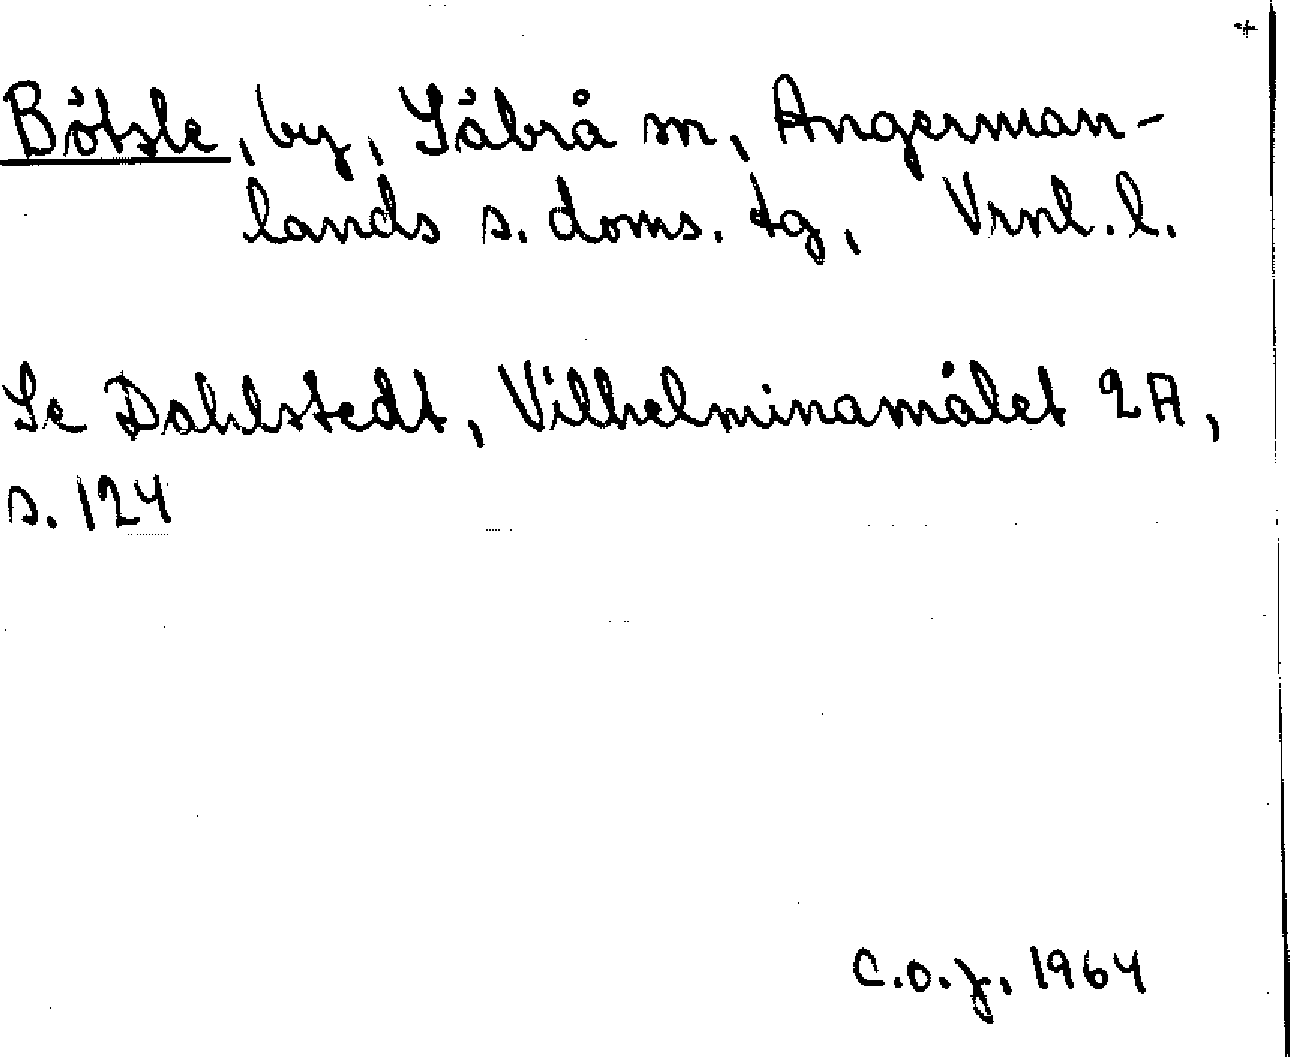 +
Bötsle, by, Säbrå sn, Ångerman-
lands s. doms. tg, Vrnl. l.
Se Dahlstedt, Vilhelminamålet 2A,
s. 124
C.O.J. 1964